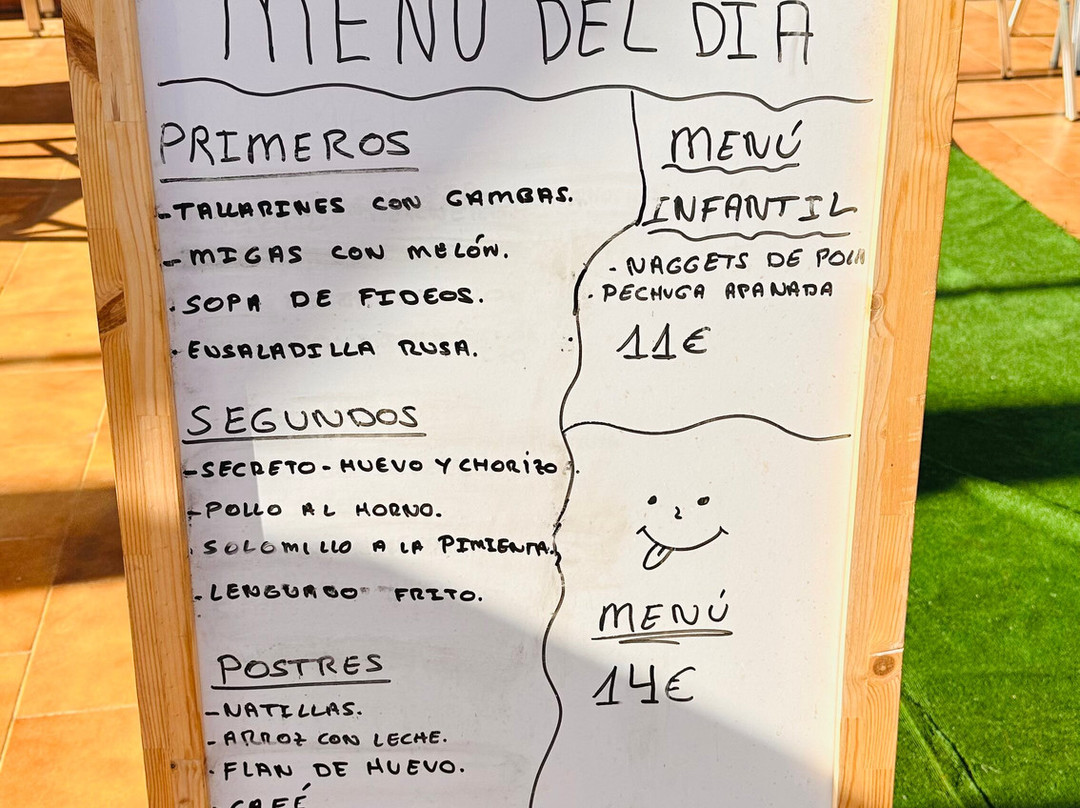 MENÚ DEL DIA
PRIMEROS
-TALLARINES CON GAMBAS.
-MIGAS CON MELÓN.
.SOPA DE FIDEOS.
.ENSALADILLA RUSA.
SEGUNDOS
-SECRETO-HUEVO Y CHORIZO.
-POLLO AL HORNO.
.SOLOMILLO A LA PIMIENTA.
.LENGUADO FRITO.
POSTRES
-NATILLAS.
-ARROZ CON LECHE.
.FLAN DE HUEVO.
.CAFÉ
MENÚ
INFANTIL
-NAGGETS DE
.PECHUGA APANADA
11€
MENÚ
14€